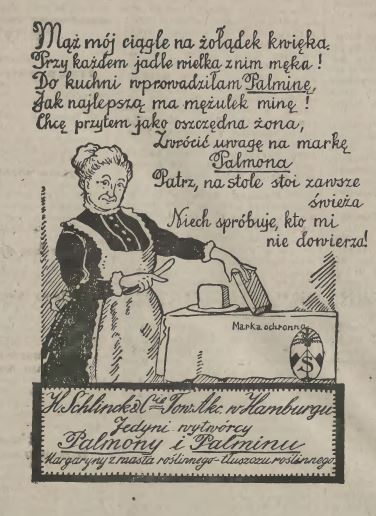 Mąż mój ciągle na żołądek kwięka.
Przy każdem jadle wielka z nim męka!
Do kuchni wprowadziłam Palminę,
Jak najlepszą ma mężulek minę!
Chcę przytem jako oszczędna żona,
Zwrócić uwagę na markę
Palmona
Patrz, na stole stoi zawsze
świeża
Niech spróbuje, kto mi
nie dowierza!
Marka ochronna
S
H. Schlinck & Cie Tow. Akc. w Hamburgu
Jedyni wytwórcy
Palmony i Palminu
Margaryny z masła roślinnego-tłuszczu roślinnego.